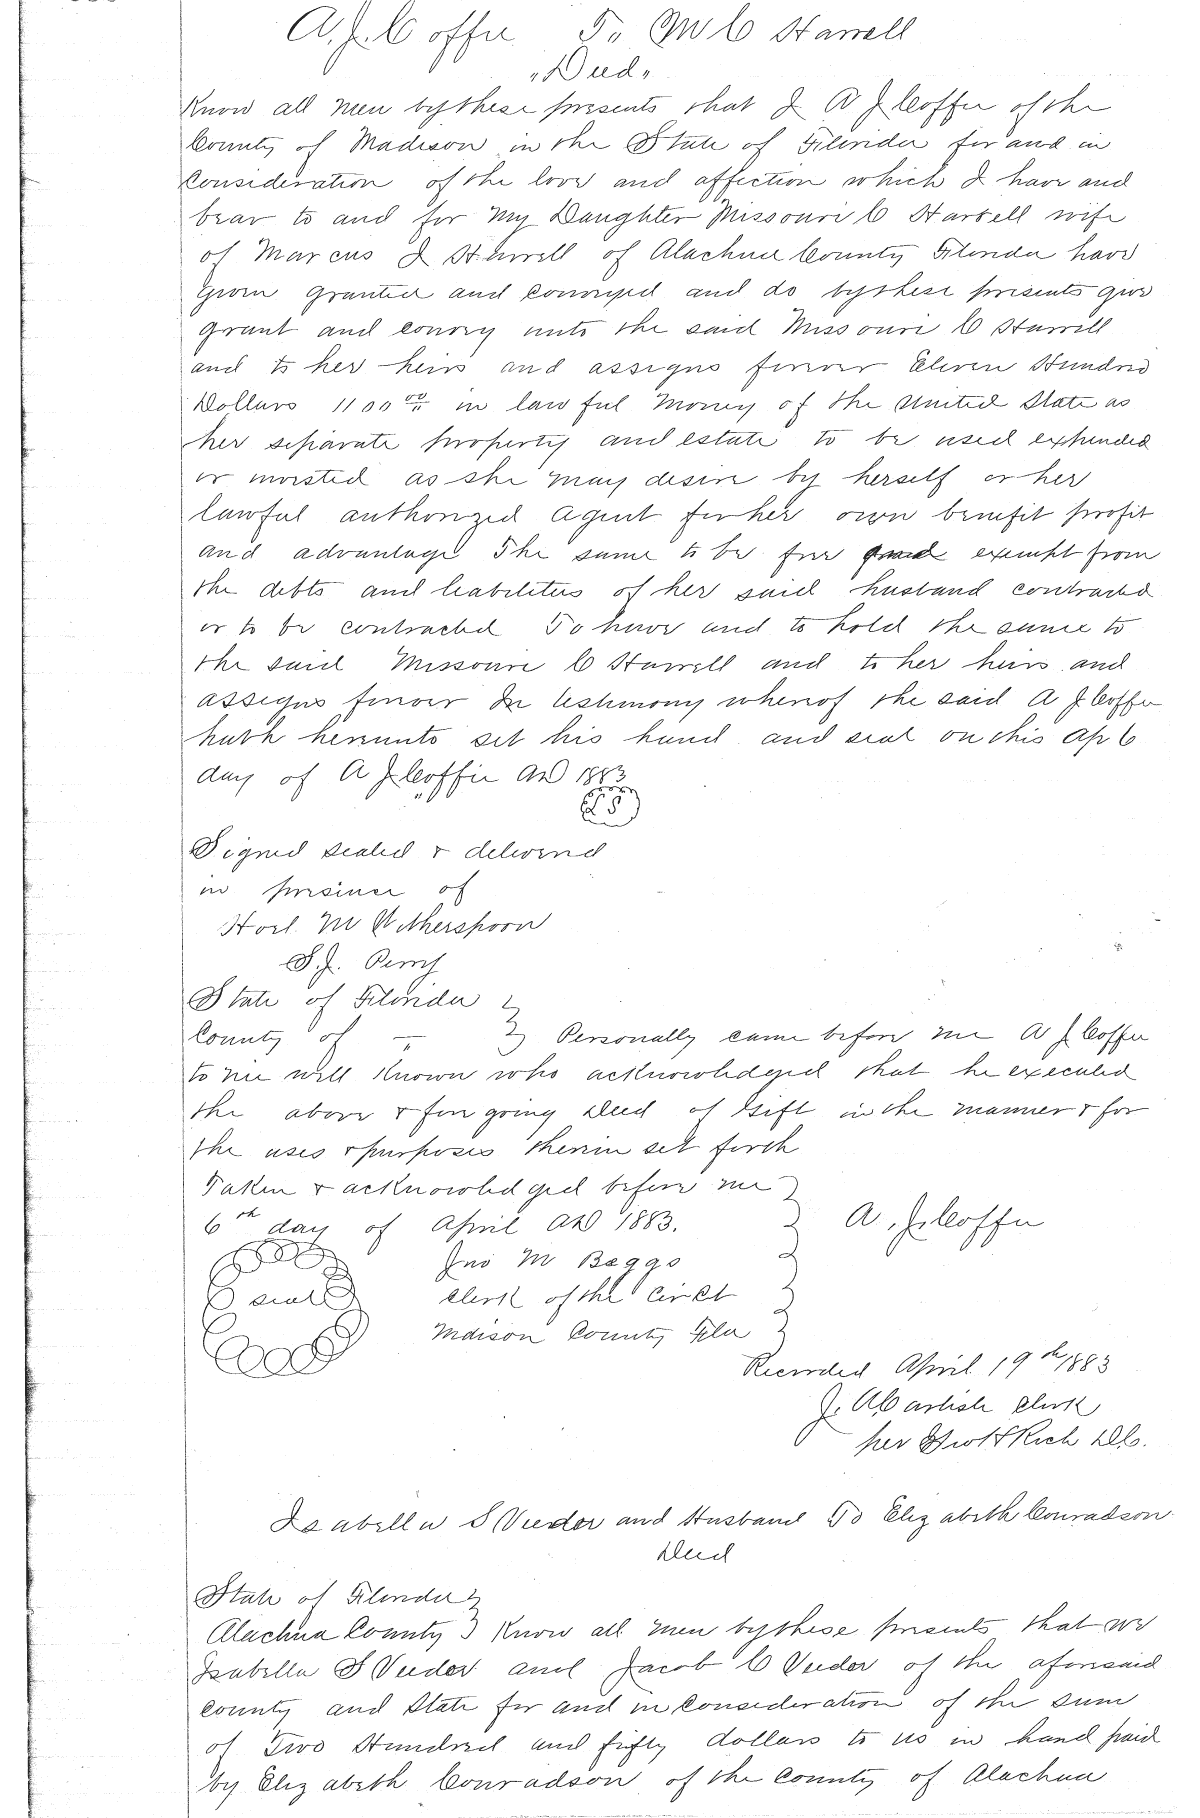 A. J. Coffee To M C Harrell
"Deed"
Know all men by these presents that I A J Coffee of the
County of Madison in the State of Florida for and in
Consideration of the love and affection which I have and
bear to and for my Daughter Missouri C Harrell wife
of Marcus J Harrell of Alachua County Florida have
Given granted and conveyed and do by these presents give
grant and convey unto the said Missouri C Harrell
and to her heirs and assigns forever Eleven Hundred
Dollars 1100 00 in lawful money of the United State as
her separate property and estate to be used expended
or invested as she may desire by herself or her
lawful authorized Agent for her own benefit profit
and advantage The same to be free exempt from
the debts and liabilities of her said husband contracted
or to be contracted To have and to hold the same to
the said Missouri C Harrell and to her heirs and
assigns forever In testimony whereof the said A J Coffee
hath hereunto set his hand and seal on this Ap 6
day of A J Coffee AD 1883
LS
Signed sealed & delivered
in presence of
M Witherspoon
S. J. Perry
State of Florida }
County of – } Personally came before me A J Coffee
to me well known who acknowledged that he executed
the above & foregoing Deed of Gift in the manner & for
the uses & purposes therein set forth
Taken & acknowledged before me }
6th day of April AD 1883. } A. J. Coffee
Jno M Beggs
seal Clerk of the Circt
Mdison County Fla
Recorded April 19th 1883
J. A Carlisle Clerk
per Rich D.C.
Isabella S Veeder and Husband To Elizabeth Conradson
Deed
State of Florida }
Alachua County } Know all men by these presents that we
Isabella S Veeder and Jacob C Veeder of the aforesaid
County and State for and in Consideration of the sum
of Two Hundred and fifty dollars to us in hand paid
by Elizabeth Conradson of the County of Alachua